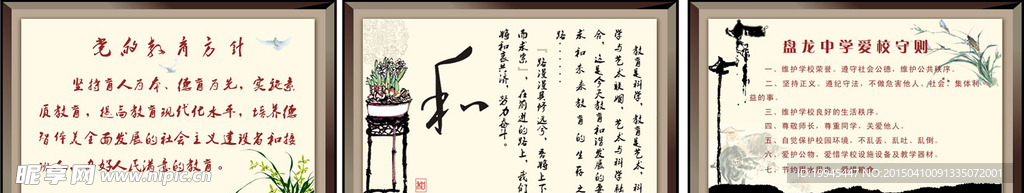 党的教育方针
坚持育人为本、德育为先，实施素
质教育，提高教育现代化水平，培养德
智体美全面发展的社会主义建设者和接
好人民满意的教育。
和
教育是科学，教育是艺
学与艺术联姻，艺术与科学
合，这是今天教育和谐发展的
求和未来教育的生存之
路……
『路漫漫其修远兮，吾将上下
而求索』，在前进的路上，我们
将和衷共济，努力奋斗。
盘龙中学爱校守则
一、维护学校荣誉。遵守社会公德，维护公共秩序。
二、坚持正义。遵纪守法，不做危害他人、社会、集体利
益的事。
三、维护学校良好的生活秩序。
四、尊敬师长，尊重同学，关爱他人。
五、自觉保护校园环境，不乱丢、乱吐、乱倒。
六、爱护公物，爱惜学校设施设备及教学器材。
七、节约
昵图网 www.nipic.com/
ID:19945447 NO:20150410091335072001